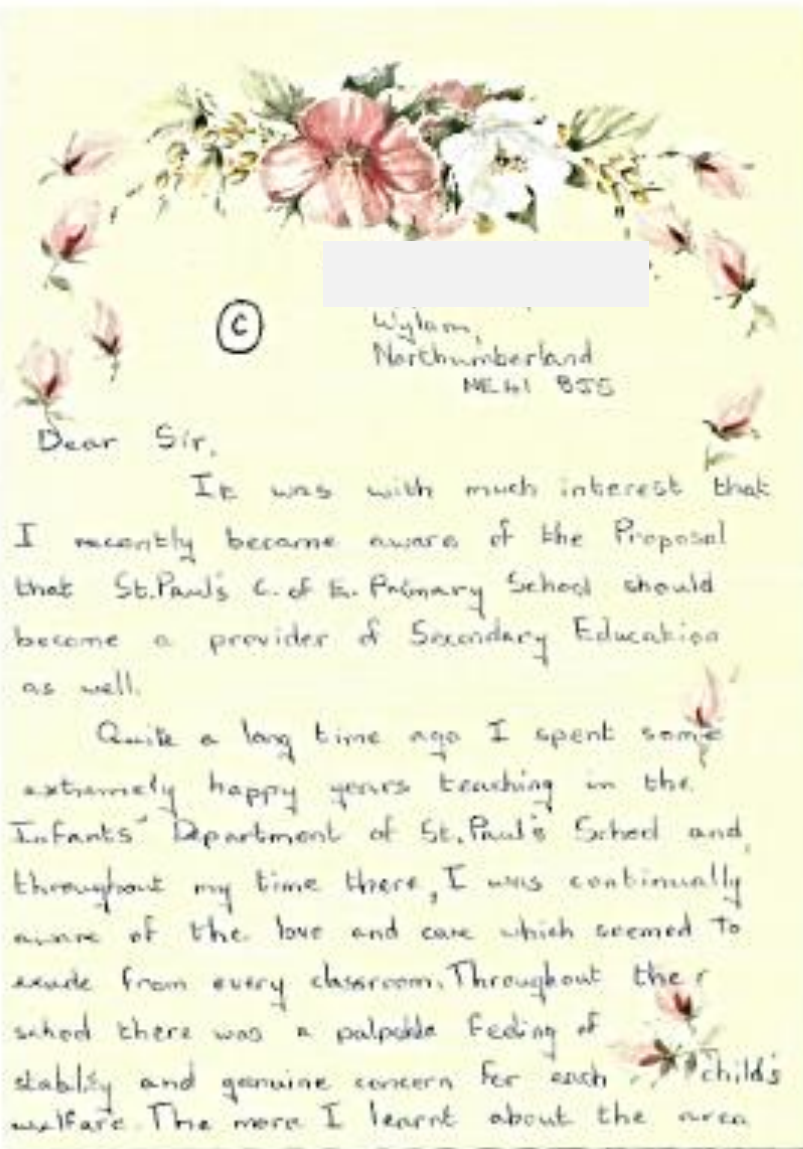 C
Wylam,
Northumberland
NE41 8JJ
Dear Sir,
It was with much interest that
I recently became aware of the Proposal
that St.Paul's C. of E. Primary School should
become a provider of Secondary Education
as well.
Quite a long time ago I spent some
extremely happy years teaching in the
Infants' Department of St.Paul's School and,
throughout my time there, I was continually
aware of the love and care which seemed to
exude from every classroom. Throughout the
school there was a palpable feeling of
stablity and genuine concern for each child's
welfare. The more I learnt about the area